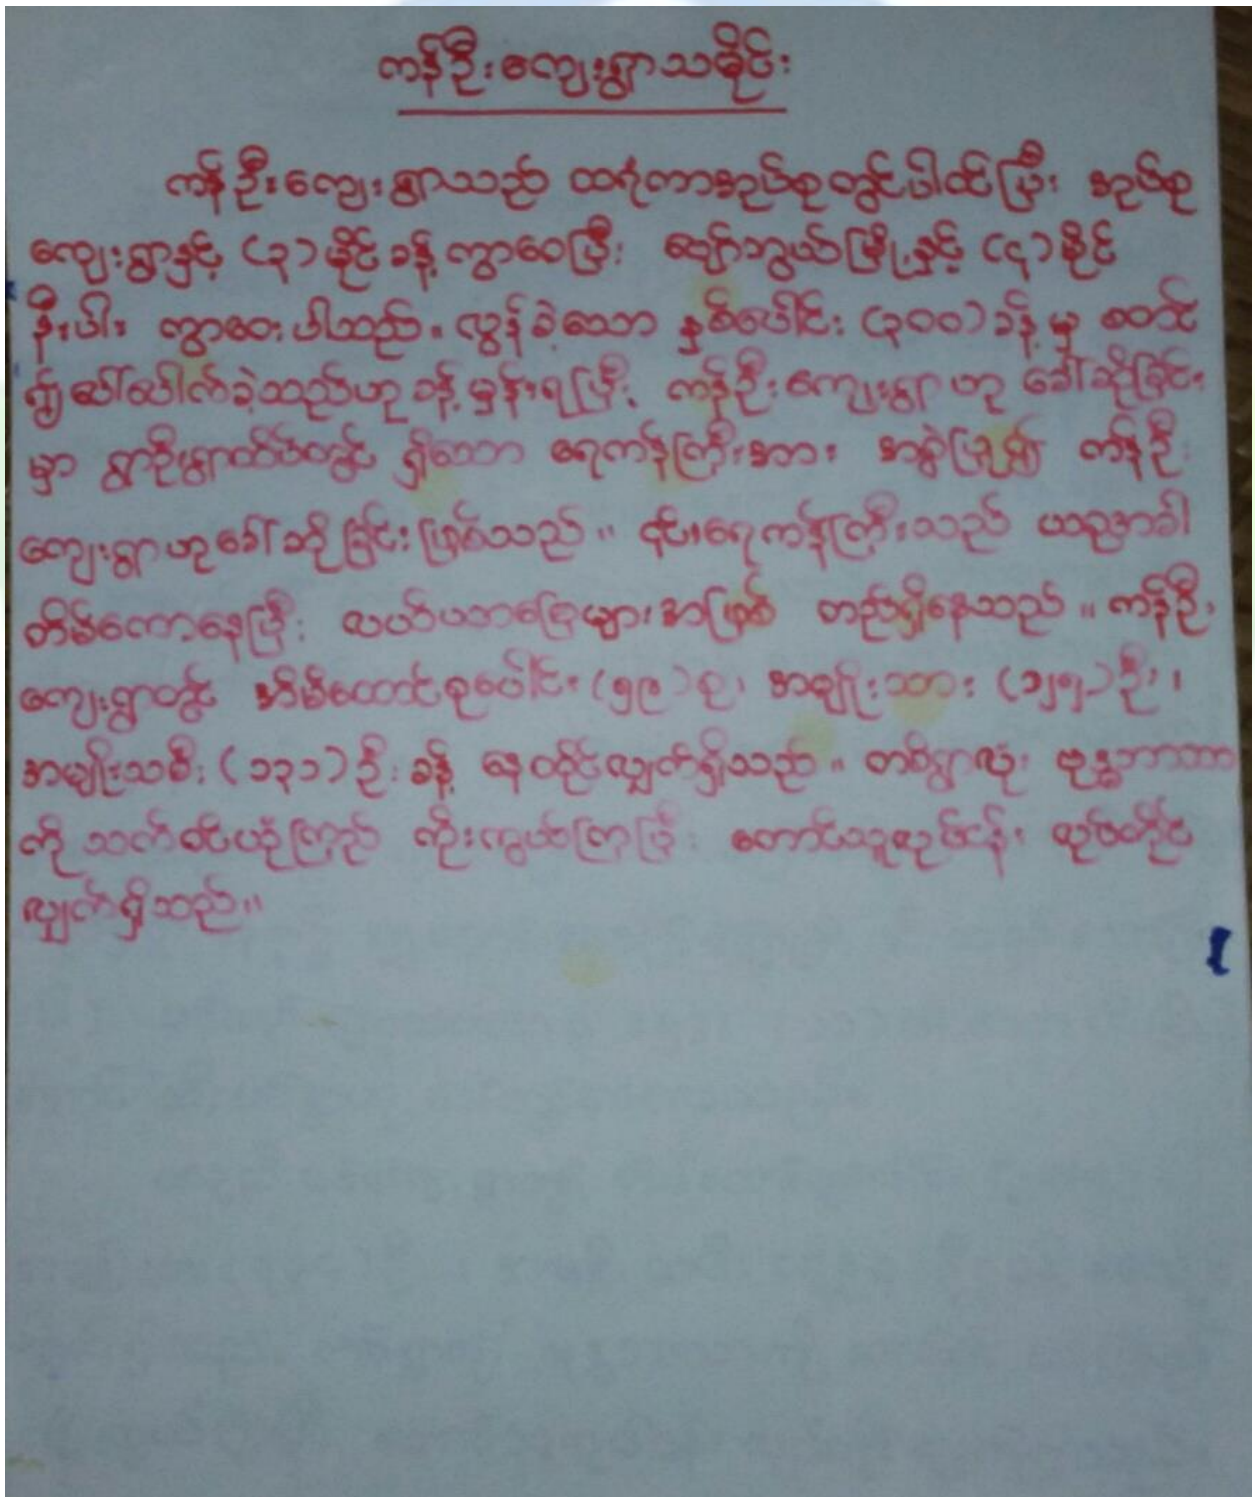 ကန်ဦးကျေးရွာသမိုင်း
ကန်ဦးကျေးရွာသည် ထရံကာအုပ်စုတွင်ပါဝင်ပြီး အုပ်စု
ကျေးရွာနှင့် (၃) မိုင်ခန့် ကွာဝေးပြီး ချော်ဘွယ်မြို့နှင့် (၄) မိုင်
နီးပါး ကွာဝေးပါသည်။ လွန်ခဲ့သော နှစ်ပေါင်း (၃၀၀) ခန့်မှ စတင်
၍ ပေါ်ပေါက်ခဲ့သည်ဟု ခန့်မှန်းရပြီး ကန်ဦးကျေးရွာ ဟု ခေါ်ဆိုခြင်း
မှာ ရွာဦးရွာထိပ်တွင် ရှိသော ရေကန်ကြီးအား အစွဲပြု၍ ကန်ဦး
ကျေးရွာဟုခေါ်ဆိုခြင်းဖြစ်သည်။ ၎င်းရေကန်ကြီးသည် ယခုအခါ
တိမ်ကောနေပြီး လယ်ယာမြေများအဖြစ် တည်ရှိနေသည်။ ကန်ဦး
ကျေးရွာတွင် အိမ်ထောင်စုပေါင်း (၅၉) စု၊ အမျိုးသား (၁၂၅) ဦး၊
အမျိုးသမီး (၁၃၁) ဦး ခန့် နေထိုင်လျှက်ရှိသည်။ တစ်ရွာလုံး ဗုဒ္ဓဘာသာ
ကို သက်ဝင်ယုံကြည် ကိုးကွယ်ကြပြီး တောင်သူလုပ်ငန်း လုပ်ကိုင်
လျှက်ရှိသည်။